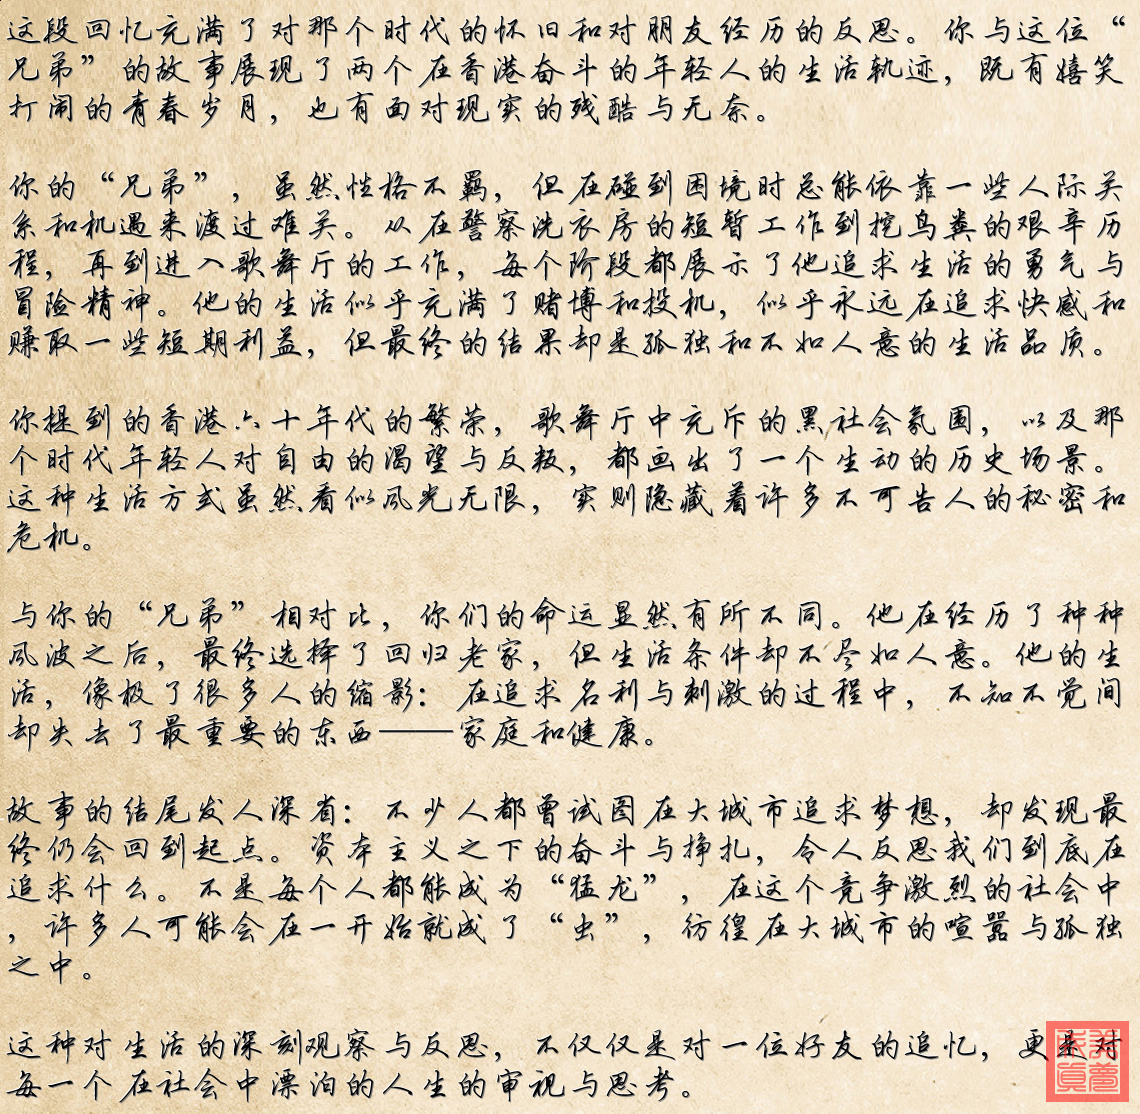 这段回忆充满了对那个时代的怀旧和对朋友经历的反思。你与这位“
兄弟”的故事展现了两个在香港奋斗的年轻人的生活轨迹，既有嬉笑
打闹的青春岁月，也有面对现实的残酷与无奈。
你的“兄弟”，虽然性格不羁，但在碰到困境时总能依靠一些人际关
系和机遇来渡过难关。从在警察洗衣房的短暂工作到挖鸟粪的艰辛历
程，再到进入歌舞厅的工作，每个阶段都展示了他追求生活的勇气与
冒险精神。他的生活似乎充满了赌博和投机，似乎永远在追求快感和
赚取一些短期利益，但最终的结果却是孤独和不如人意的生活品质。
你提到的香港六十年代的繁荣，歌舞厅中充斥的黑社会氛围，以及那
个时代年轻人对自由的渴望与反叛，都画出了一个生动的历史场景。
这种生活方式虽然看似风光无限，实则隐藏着许多不可告人的秘密和
危机。
与你的“兄弟”相对比，你们的命运显然有所不同。他在经历了种种
风波之后，最终选择了回归老家，但生活条件却不尽如人意。他的生
活，像极了很多人的缩影：在追求名利与刺激的过程中，不知不觉间
却失去了最重要的东西——家庭和健康。
故事的结尾发人深省：不少人都曾试图在大城市追求梦想，却发现最
终仍会回到起点。资本主义之下的奋斗与挣扎，令人反思我们到底在
追求什么。不是每个人都能成为“猛龙”，在这个竞争激烈的社会中
，许多人可能会在一开始就成了“虫”，彷徨在大城市的喧嚣与孤独
之中。
这种对生活的深刻观察与反思，不仅仅是对一位好友的追忆，更是对
每一个在社会中漂泊的人生的审视与思考。